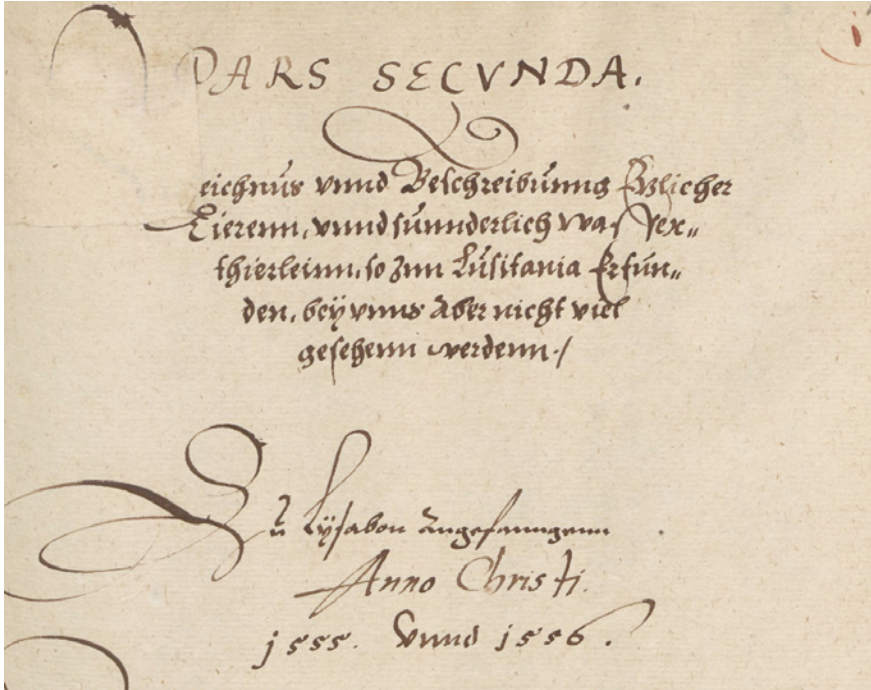 PARS SECVNDA.
eichnus vnnd Beschreibunng Etzlicher
Tierenn, vnnd sunnderlich was
thierleinn, so Inn Lusitania Erfun„
den, beÿ vnns Aber nicht viel
gesehenn werdenn./
Zu Lÿsabon Angefanngenn
Anno Christi.
1555. Vnnd 1556.